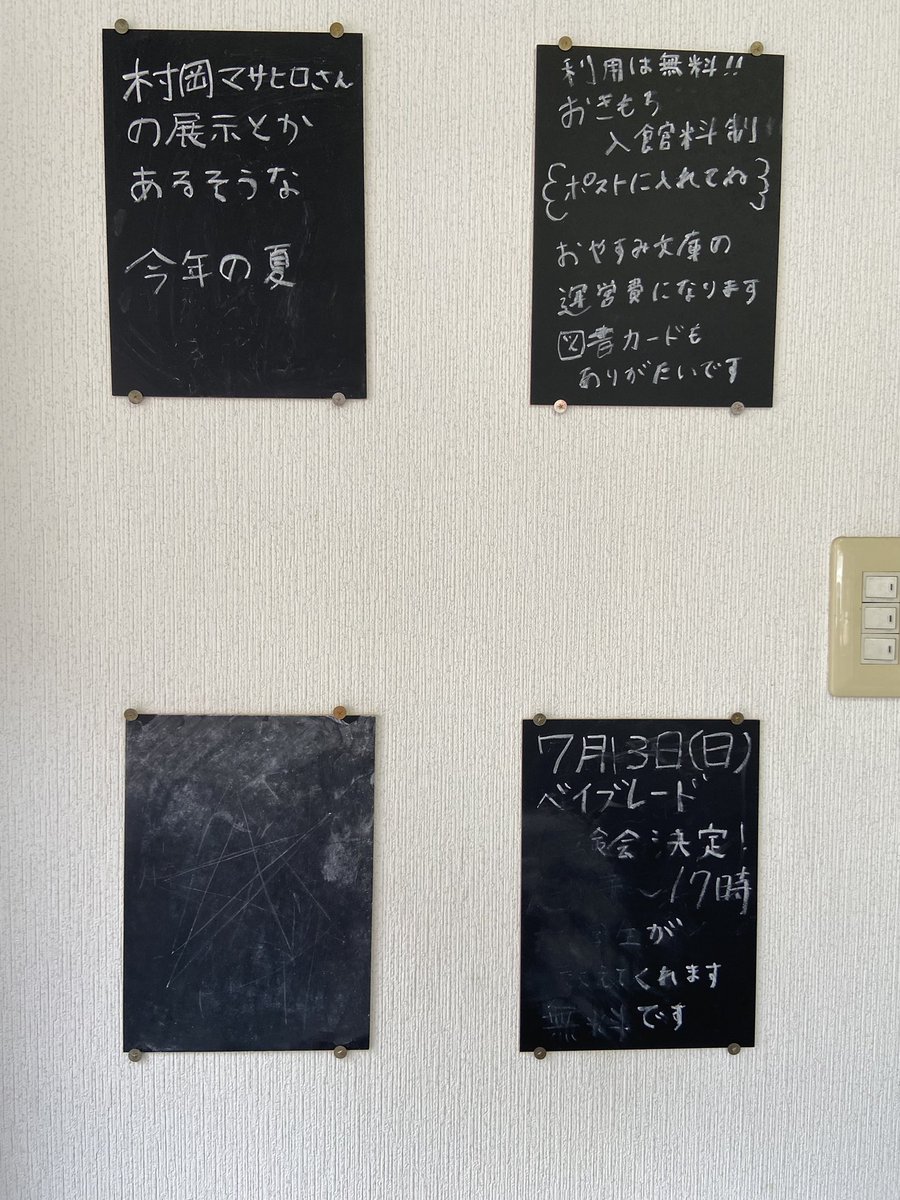 村岡マサヒロさん
の展示とか
あるそうな
今年の夏
利用は無料!!
おきもち
入館料制
{ポストに入れてね}
おやすみ文庫の
運営費になります
図書カードも
ありがたいです
7月13日(日)
ベイブレード
会 決定!
〜17時
が
くれます
無料です